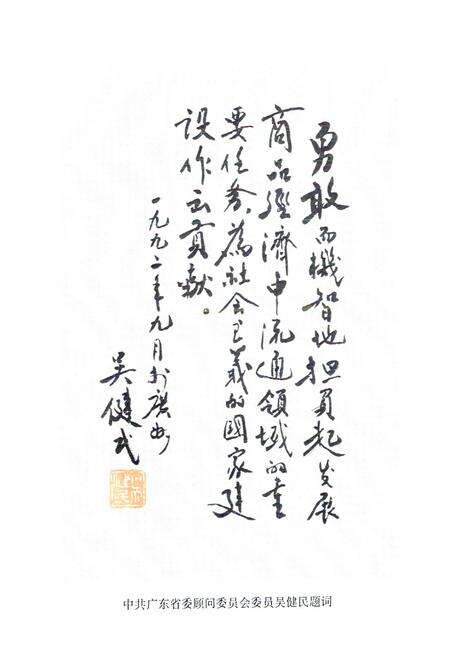 勇敢而機智地担負起发展
商品經濟中流通領域的重
要任务，為社会主义的國家建
设作出貢獻。
一九九二年九月於廣州
吴健民
中共广东省委顾问委员会委员吴健民题词